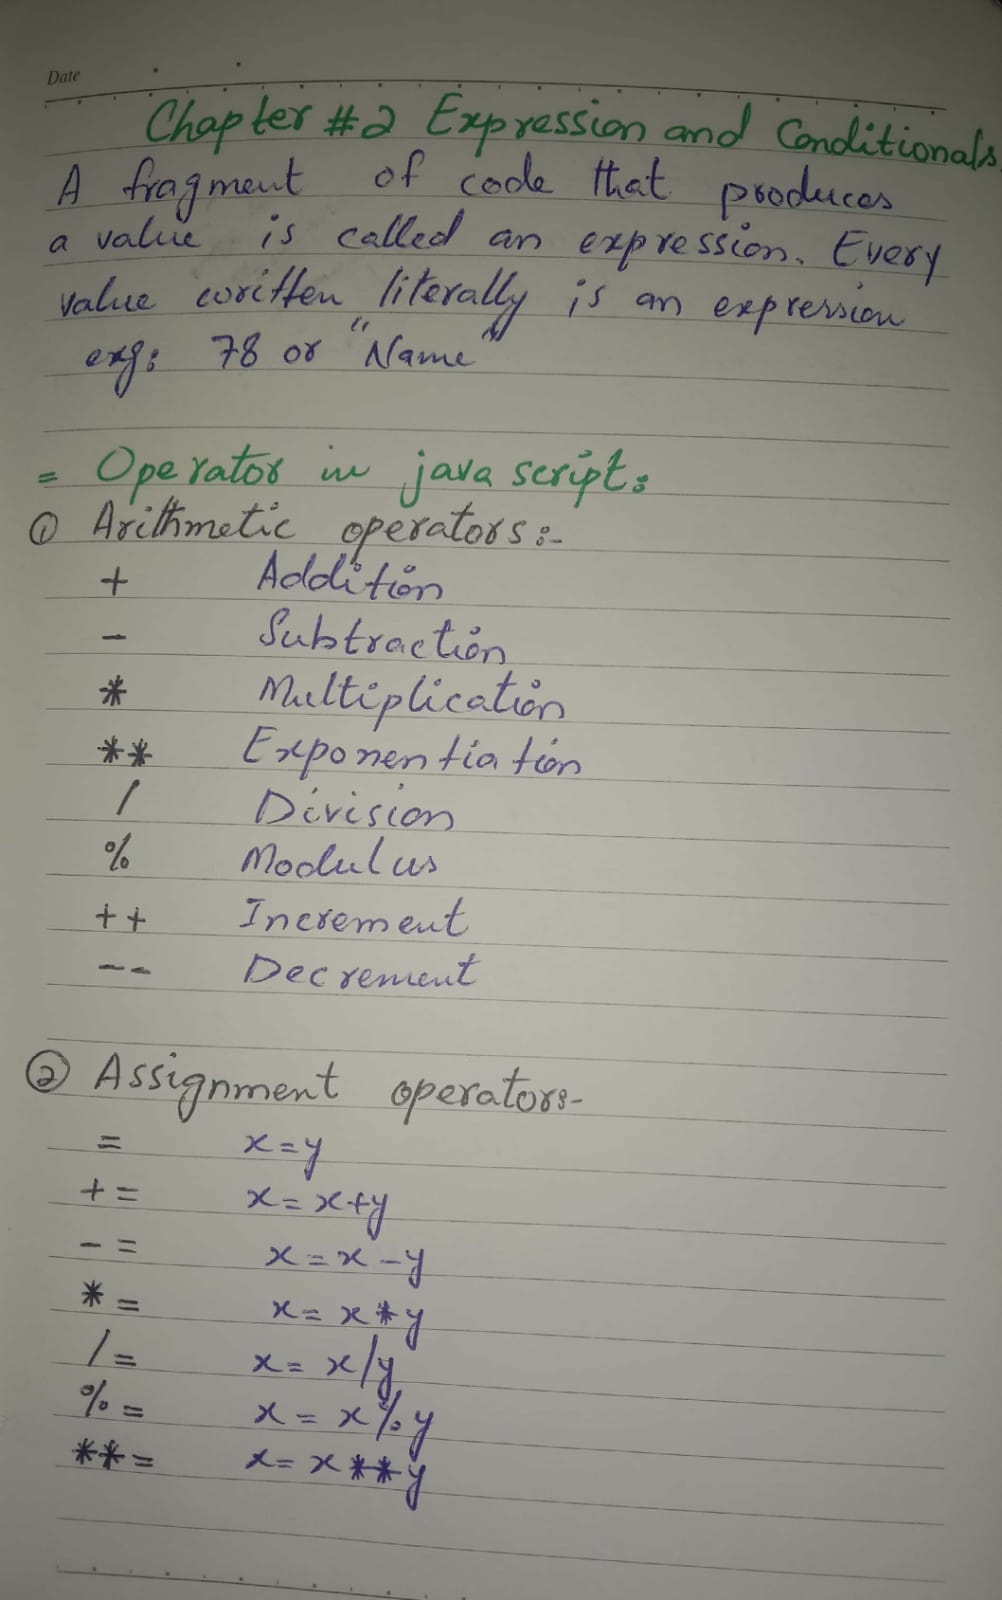 Date
Chapter #2 Expression and Conditionals
A fragment of code that produces
a value is called an expression. Every
value written literally is an expression
exg: 78 or "Name"
= Operator in java script:
① Arithmetic operators:-
+ Addition
- Subtraction
* Multiplication
** Exponentiation
/ Division
% Modulus
++ Increment
-- Decrement
② Assignment operators-
= x=y
+= x=x+y
-= x=x-y
*= x=x*y
/= x=x/y
%= x=x%y
**= x=x**y